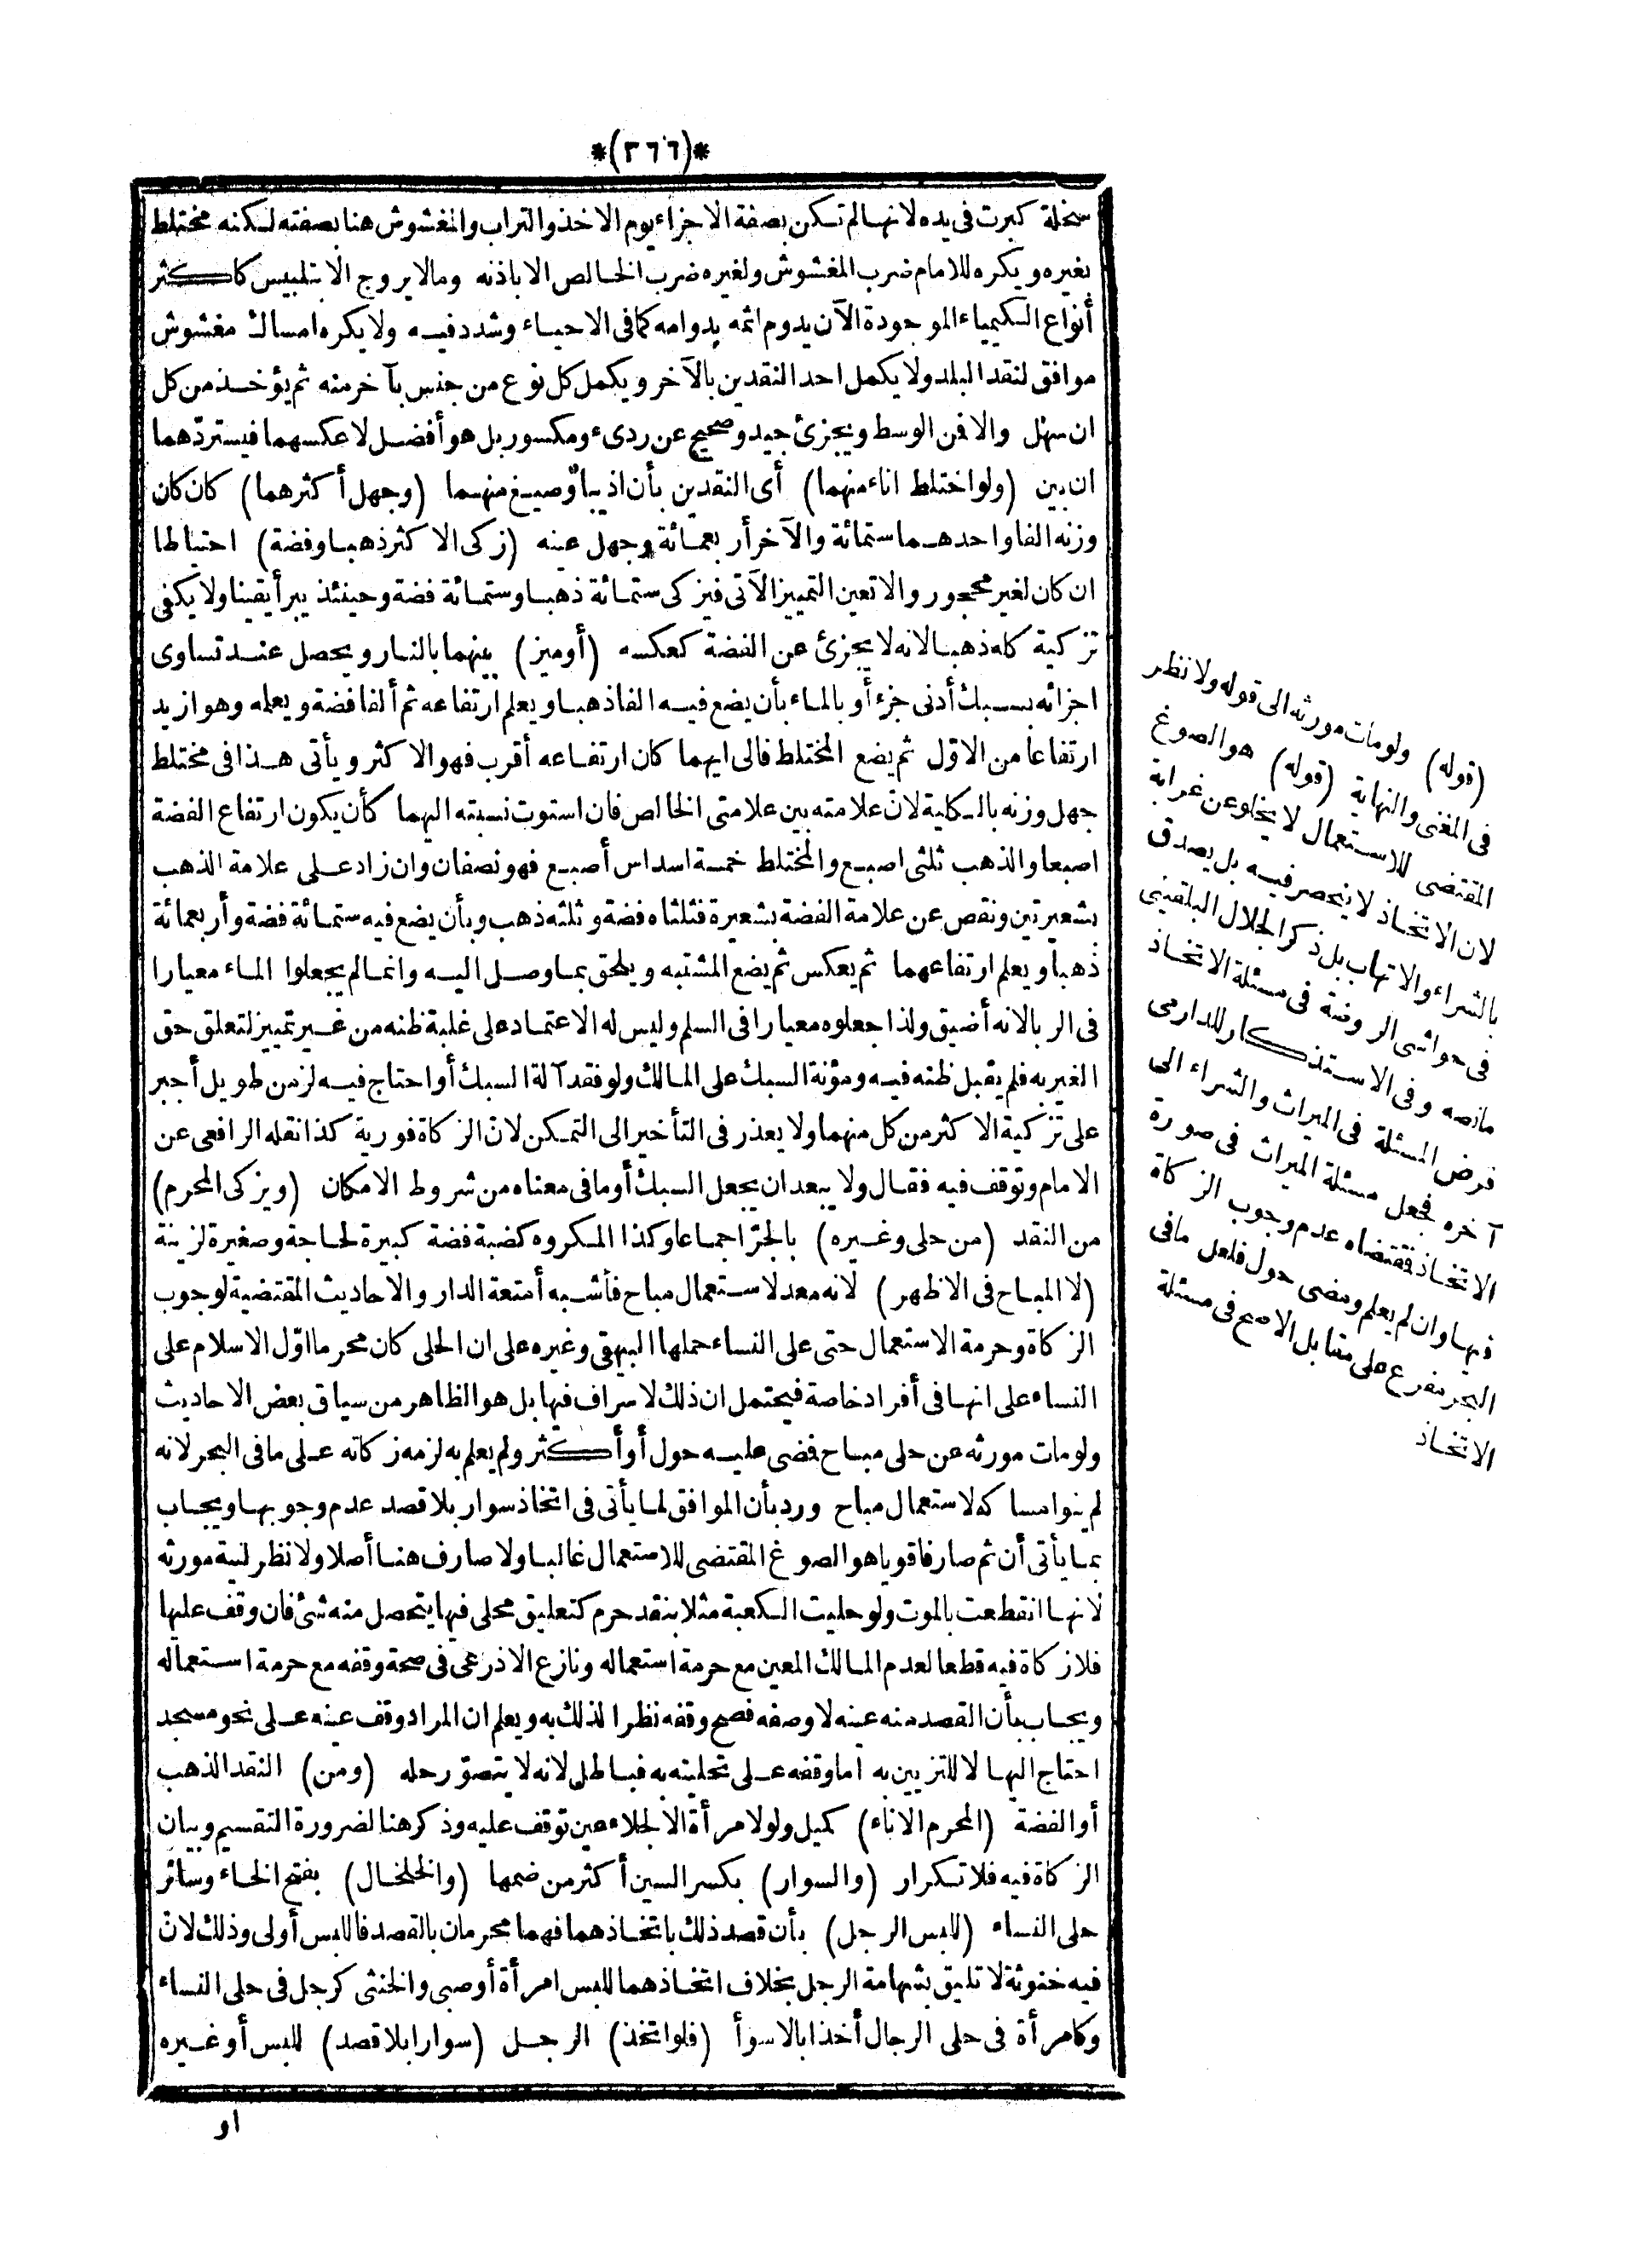 *(٣٦٦)*
سخلة كبرت فى يده لانها لم تكن بصفة الاجزاء يوم الاخذ والتراب والمغشوش هنا بصفته لكنه مختلط
بغيره ويكره للامام ضرب المغشوش ولغيره ضرب الخالص الا باذنه وما لا يروج الا بتلبيس كاكثر
أنواع الكيمياء الموجودة الآن يدوم اثمه بدوامه كما فى الاحياء وشدد فيه ولا يكره امساك مغشوش
موافق لنقد البلد ولا يكمل احد النقدين بالآخر ويكمل كل نوع من جنس بآخر منه ثم يؤخذ من كل
ان سهل والا فمن الوسط ويجزئ جيد وصحيح عن ردىء ومكسور بل هو أفضل لا عكسهما فيستردّهما
ان بين (ولو اختلط اناء منهما) أى النقدين بأن اذيبا وصيغ منهما (وجهل أكثرهما) كان كان
وزنه الفا واحدهما ستمائة والآخر أربعمائة وجهل عينه (زكى الاكثر ذهبا وفضة) احتياطا
ان كان لغير محجور والا تعين التمييز الآتى فيزكى ستمائة ذهبا وستمائة فضة وحينئذ يبرأ يقينا ولا يكفى
تزكية كله ذهبا لانه لا يجزئ عن الفضة كعكسه (أو ميز) بينهما بالنار ويحصل عند تساوى
اجزائه بسبك أدنى جزء أو بالماء بأن يضع فيه الفا ذهبا ويعلم ارتفاعه ثم ألفا فضة ويعلمه وهو ازيد
ارتفاعا من الاوّل ثم يضع المختلط فالى ايهما كان ارتفاعه أقرب فهو الاكثر ويأتى هذا فى مختلط
جهل وزنه بالكلية لانّ علامته بين علامتى الخالص فان استوت نسبته اليهما كأن يكون ارتفاع الفضة
اصبعا والذهب ثلثى اصبع والمختلط خمسة اسداس أصبع فهو نصفان وان زاد على علامة الذهب
بشعيرتين ونقص عن علامة الفضة بشعيرة فثلثاه فضة وثلثه ذهب وبأن يضع فيه ستمائة فضة وأربعمائة
ذهبا ويعلم ارتفاعهما ثم يعكس ثم يضع المشتبه ويلحق بما وصل اليه وانما لم يجعلوا الماء معيارا
فى الربا لانه أضيق ولذا جعلوه معيارا فى السلم وليس له الاعتماد على غلبة ظنه من غير تمييز لتعلق حق
الغير به فلم يقبل ظنه فيه ومؤنة السبك على المالك ولو فقد آلة السبك أو احتاج فيه لزمن طويل أجبر
على تزكية الاكثر من كل منهما ولا يعذر فى التأخير الى التمكن لانّ الزكاة فورية كذا نقله الرافعى عن
الامام وتوقف فيه فقال ولا يبعد ان يجعل السبك أو ما فى معناه من شروط الامكان (ويزكى المحرم)
من النقد (من حلى وغيره) بالجرّ اجماعا وكذا المكروه كضبة فضة كبيرة لحاجة وصغيرة لزينة
(لا المباح فى الاظهر) لانه معد لاستعمال مباح فأشبه أمتعة الدار والاحاديث المقتضية لوجوب
الزكاة وحرمة الاستعمال حتى على النساء حملها البيهقى وغيره على ان الحلى كان محرما اوّل الاسلام على
النساء على انها فى أفراد خاصة فيحتمل ان ذلك لاسراف فيها بل هو الظاهر من سياق بعض الاحاديث
ولو مات مورثه عن حلى مباح فمضى عليه حول أو أكثر ولم يعلم به لزمه زكاته على ما فى البحر لانه
لم ينو امساكه لاستعمال مباح ورد بأن الموافق لما يأتى فى اتخاذ سوار بلا قصد عدم وجوبها ويجاب
بما يأتى أن ثم صارفا قويا هو الصوغ المقتضى للاستعمال غالبا ولا صارف هنا أصلا ولا نظر لنية مورثه
لانها انقطعت بالموت ولو حليت الكعبة مثلا بنقد حرم كتعليق محلى فيها يتحصل منه شئ فان وقف عليها
فلا زكاة فيه قطعا لعدم المالك المعين مع حرمة استعماله ونازع الاذرعى فى صحة وقفه مع حرمة استعماله
ويجاب بأن القصد منه عينه لا وصفه فصح وقفه نظرا لذلك به ويعلم ان المراد وقف عينه على نحو مسجد
احتاج اليها لا للتزيين به أما وقفه على تحليته به فباطل لانه لا يتصوّر حله (ومن) النقد الذهب
أو الفضة (المحرم الاناء) كميل ولو لامرأة الا لجلاء عين توقف عليه وذكر هنا لضرورة التقسيم وبيان
الزكاة فيه فلا تكرار (والسوار) بكسر السين أكثر من ضمها (والخلخال) بفتح الخاء وسائر
حلى النساء (للبس الرجل) بأن قصد ذلك باتخاذهما فهما محرمان بالقصد فاللبس أولى وذلك لانّ
فيه خنوثة لا تليق بشهامة الرجل بخلاف اتخاذهما للبس امرأة أو صبى والخنثى كرجل فى حلى النساء
وكامرأة فى حلى الرجال أخذا بالاسوأ (فلو اتخذ) الرجل (سوارا بلا قصد) للبس أو غيره
او
(قوله) ولو مات مورثه الى قوله ولا نظر
فى المغنى والنهاية (قوله) هو الصوغ
المقتضى للاستعمال لا يخلو عن غرابة
لان الاتخاذ لا ينحصر فيه بل يصدق
بالشراء والاتهاب بل ذكر الجلال البلقينى
فى حواشى الروضة فى مسئلة الاتخاذ
مانصه وفى الاستذكار للدارمى
فرض المسئلة فى الميراث والشراء الى
آخره فجعل مسئلة الميراث فى صورة
الاتخاذ فقتضاه عدم وجوب الزكاة
فيها وان لم يعلم ومضى حول فلعل ما فى
البحر مفرع على مقابل الاصح فى مسئلة
الاتخاذ